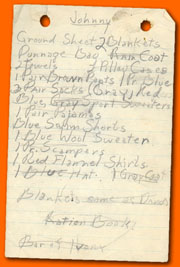 Johnny
Ground Sheet 2 Blankets
Dunnage Bag Rain Coat
2 Towels 2 Pillow Cases
1 Pair Brown Pants 1 Pr. Blue
3 Pair Socks (Gray) Red
Blue Gray Sport Sweaters
1 Pair Pajamas
Blue Swim Shorts
1 Blue Wool Sweater
1 Pr. Scampers
1 Red Flannel Shirts
1 Blue Hat 1 Gray Coat
Blankets same as
Ration Book
Bar of Ivory